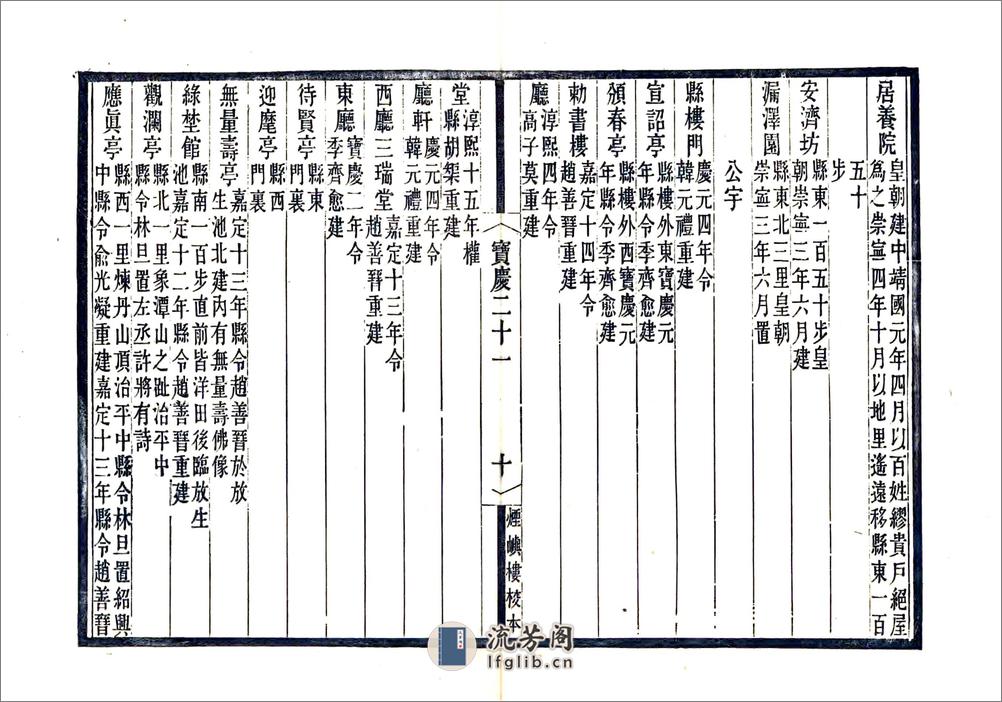 居養院皇朝建中靖國元年四月以百姓繆貴戶絕屋
爲之崇寧四年十月以地里遙遠移縣東一百
五十
步
安濟坊縣東一百五十步皇
朝崇寧三年六月建
漏澤園縣東北三里皇朝
崇寧三年六月置
公宇
縣樓門慶元四年令
韓元禮重建
宣詔亭縣樓外東寶慶元
年縣令季齊愈建
頒春亭縣樓外西寶慶元
年縣令季齊愈建
勅書樓嘉定十四年令
趙善晉重建
廳淳熙四年令
高子莫重建
寶慶二十一
十
煙嶼樓校本
堂淳熙十五年權
縣胡榘重建
廳軒慶元四年令
韓元禮重建
西廳三瑞堂嘉定十三年令
趙善晉重建
東廳寶慶二年令
季齊愈建
待賢亭縣東
門裏
迎麾亭縣西
門裏
無量壽亭嘉定十三年縣令趙善晉於放
生池北建內有無量壽佛像
綠埜館縣南一百步直前皆洋田後臨放生
池嘉定十二年縣令趙善晉重建
觀瀾亭縣北一里象潭山之趾治平中
縣令林旦置左丞許將有詩
應眞亭縣西一里煉丹山頂治平中縣令林旦置紹興
中縣令俞光凝重建嘉定十三年縣令趙善晉
流芳阁
lfglib.cn